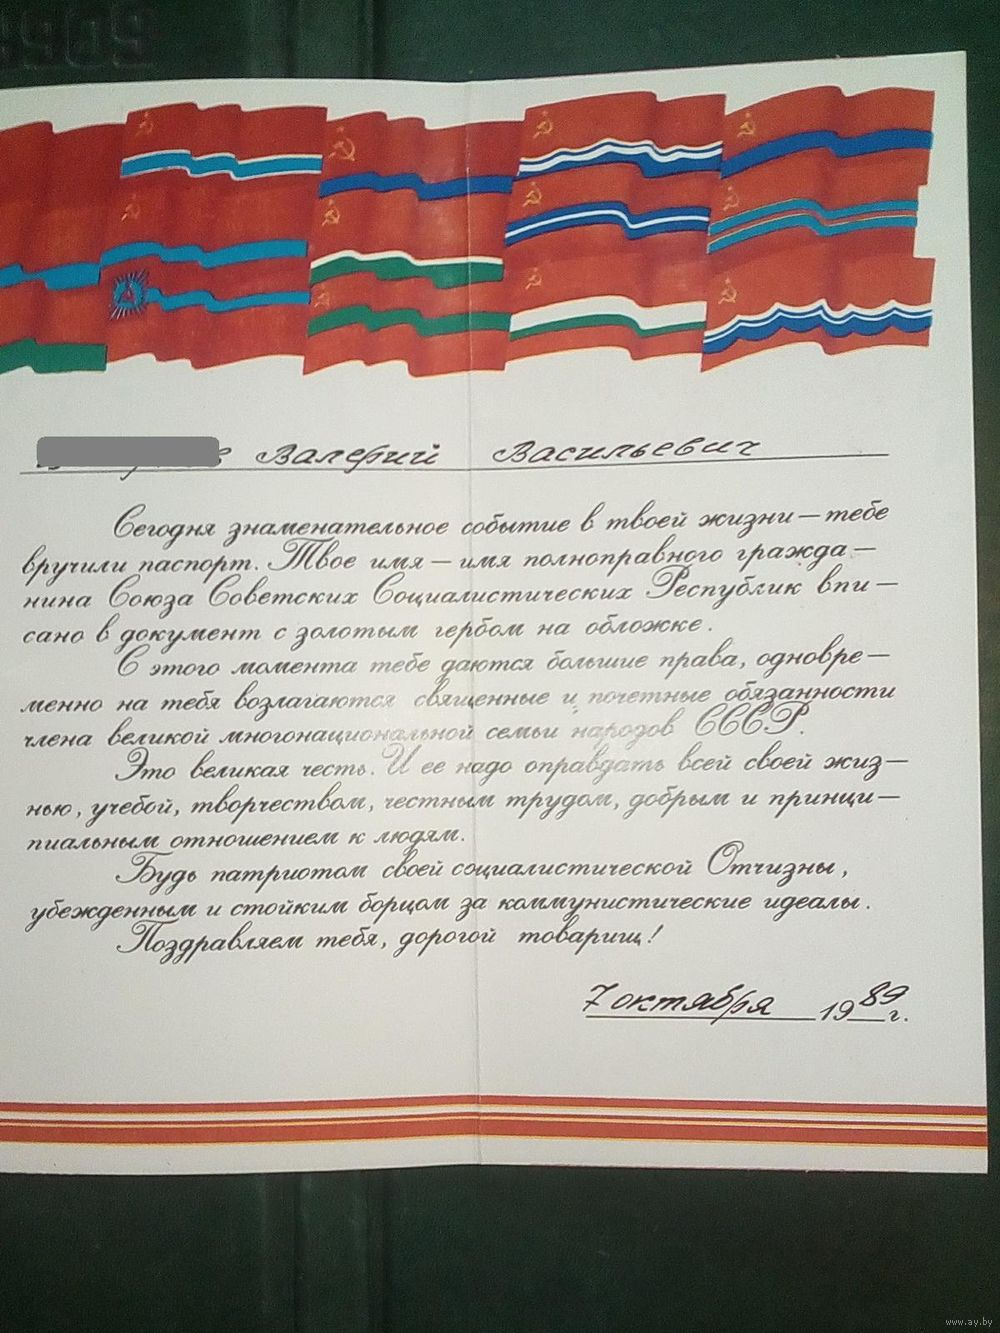 Валерий Васильевич
Сегодня знаменательное событие в твоей жизни — тебе
вручили паспорт. Твое имя — имя полноправного гражда—
нина Союза Советских Социалистических Республик впи—
сано в документ с золотым гербом на обложке.
С этого момента тебе даются большие права, одновре—
менно на тебя возлагаются священные и почетные обязанности
члена великой многонациональной семьи народов СССР.
Это великая честь. И ее надо оправдать всей своей жиз—
нью, учебой, творчеством, честным трудом, добрым и принци—
пиальным отношением к людям.
Будь патриотом своей социалистической Отчизны,
убежденным и стойким борцом за коммунистические идеалы.
Поздравляем тебя, дорогой товарищ!
7 октября 1989 г.
www.ay.by